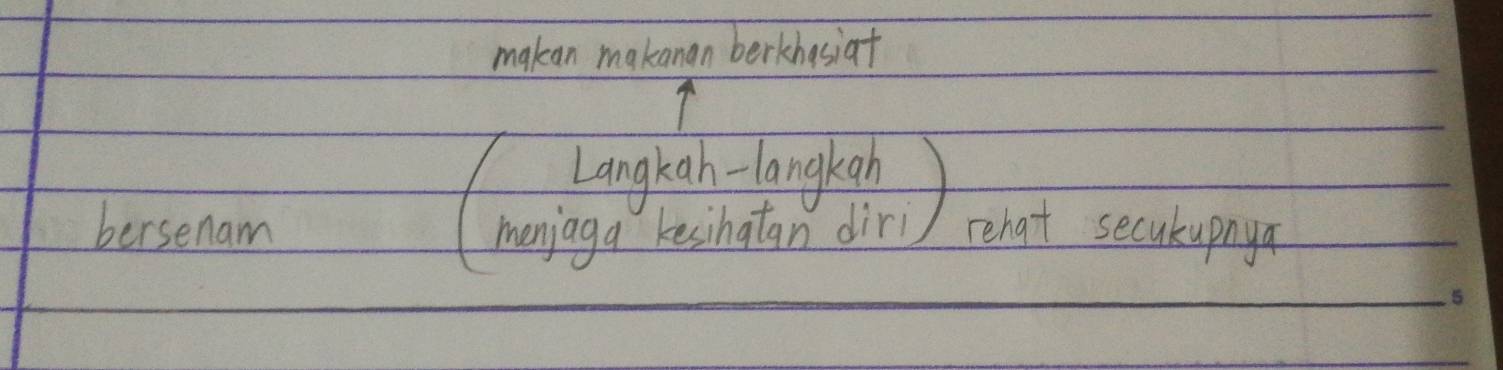 makan makanan berkhasiat
Langkah-langkah
bersenam menjaga kesihatan diri rehat secukupnya
5